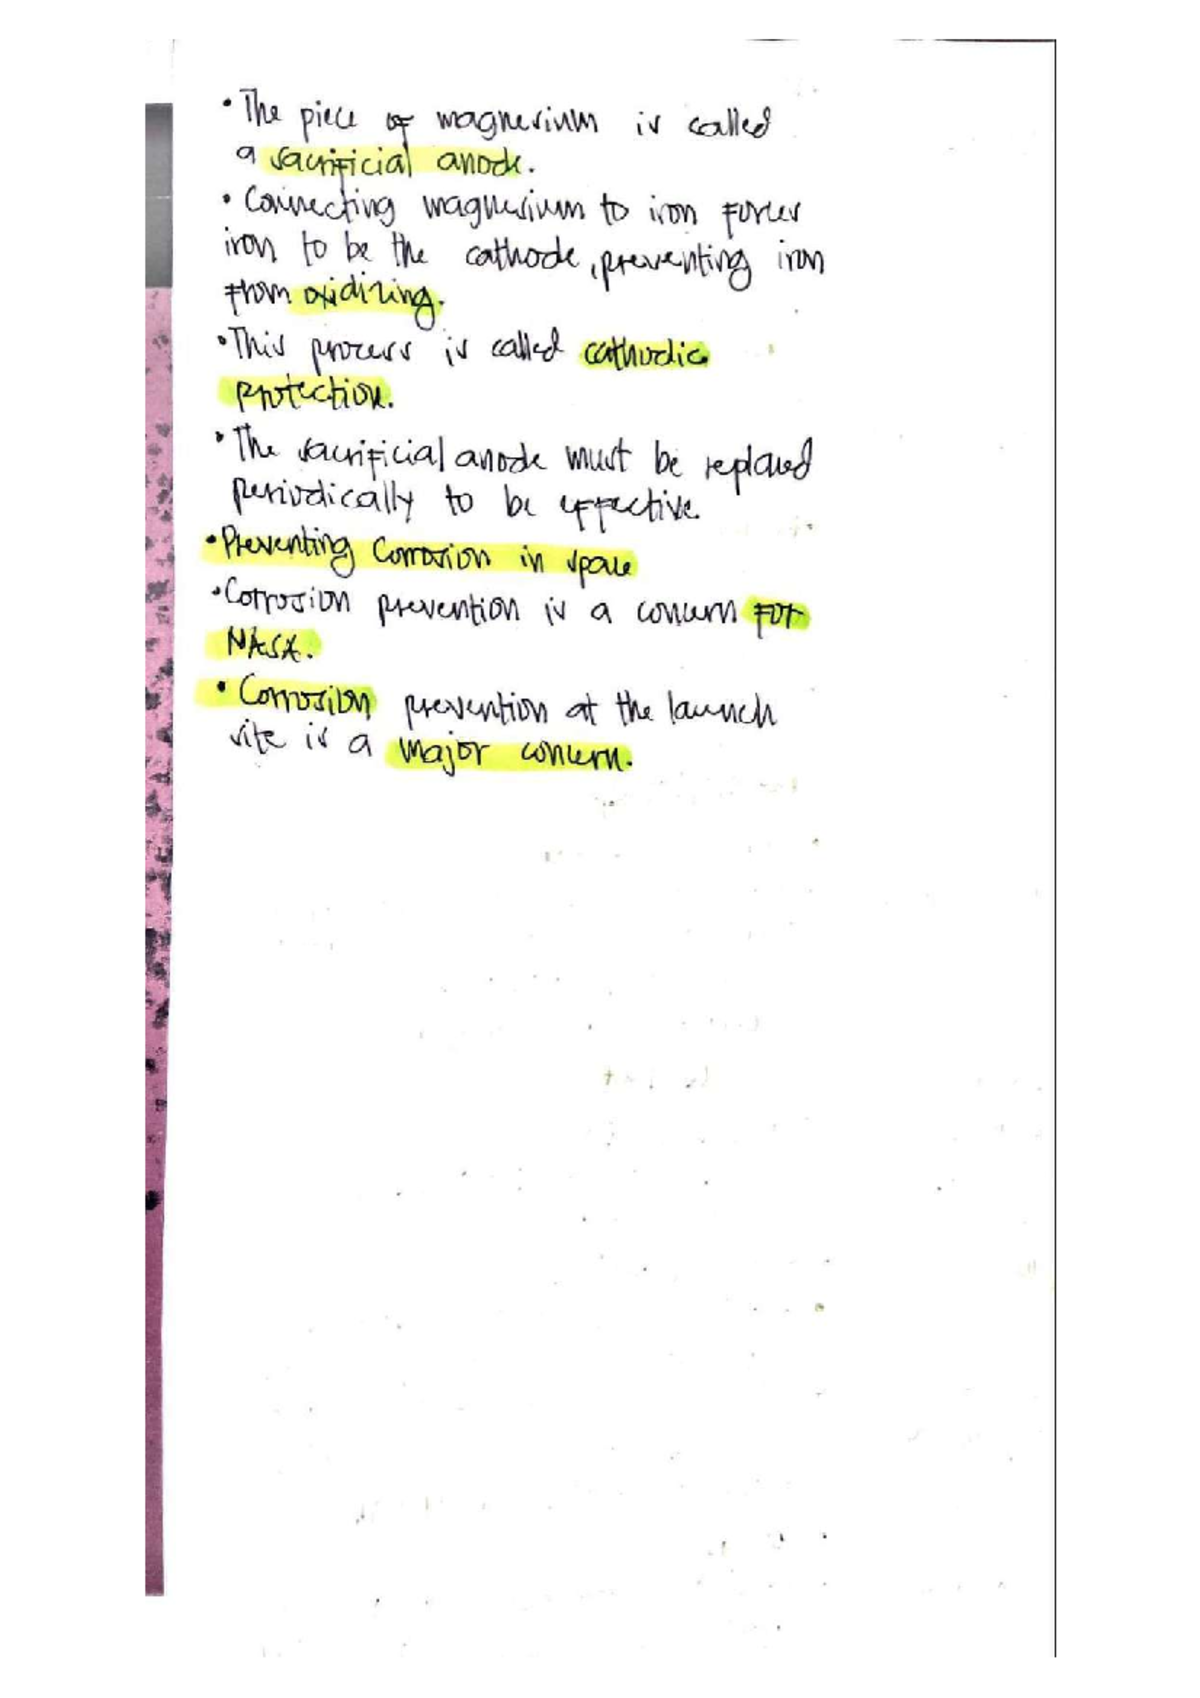 • The piece of magnesium is called
a sacrificial anode.
• Connecting magnesium to iron forces
iron to be the cathode, preventing iron
from oxidizing.
• This process is called cathodic
protection.
• The sacrificial anode must be replaced
periodically to be effective.
• Preventing Corrosion in space
• Corrosion prevention is a concern for
NASA.
• Corrosion prevention at the launch
site is a major concern.